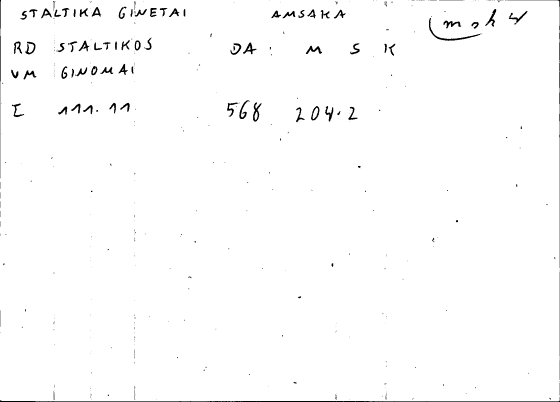 STALTIKA GINETAI AMSAKA
RD STALTIKOS DA: M S K
VM GINOMAI
I 111.11 568 204.2